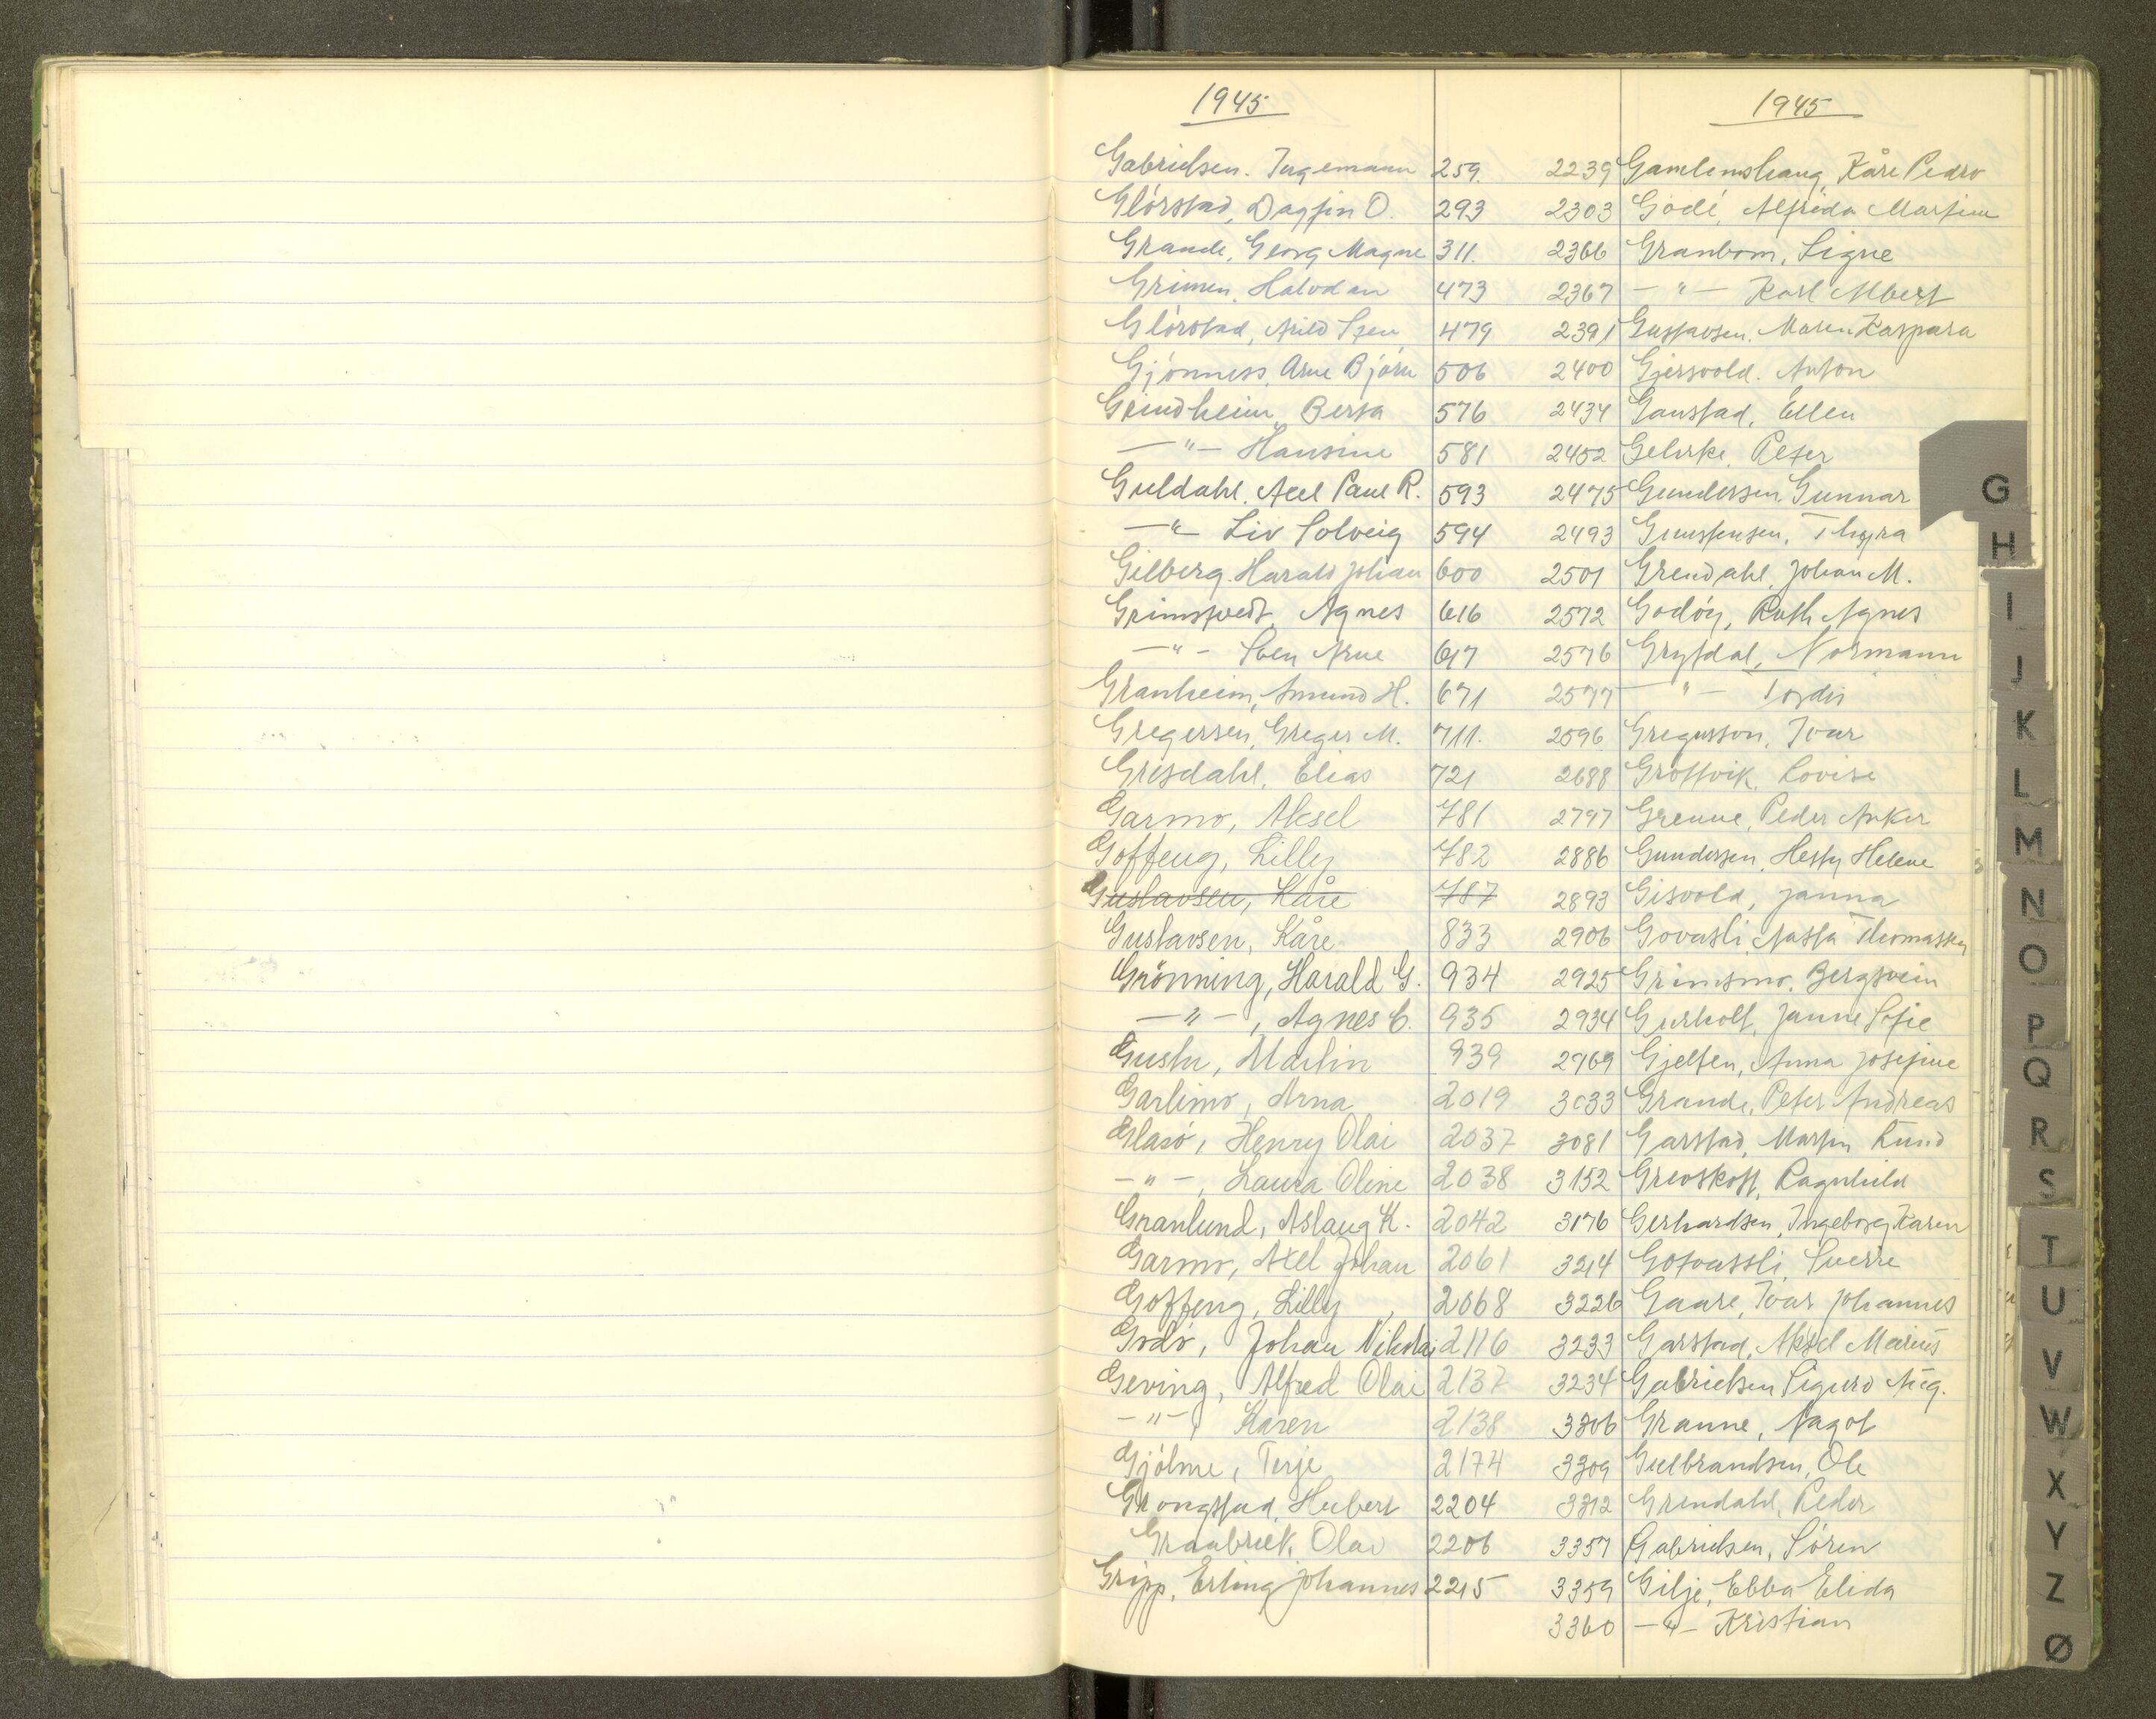 1945
Gabrielsen. Ingemann 259.
Glörstad, Dagfin O. 293
Grande, Georg Magne 311.
Grimen, Halvdan 473
Glörstad, Arild Sten 479
Gjönness, Arne Björn 506
Grindheim, Berta 576
—"— Hansine 581
Guldahl. Axel Paul R. 593
—"— Liv Solveig 594
Gilberg. Harald Johan 600
Grimstvedt, Agnes 616
—"— Sven Arne 617
Granheim, Amund H. 671
Gregersen, Greger M. 711.
Grisdahl, Elias 721
Garmo, Aksel 781
Goffeng, Lilly 782
Gustavsen, Kåre 787
Gustavsen, Kåre 833
Grönning, Harald G. 934
—"—, Agnes C. 935
Gustu, Martin 939
Garlimo, Arna 2019
Glasö, Henry Olai 2037
—"—, Laura Oline 2038
Granlund, Aslaug K. 2042
Garmo, Axel Johan 2061
Goffeng, Lilly 2068
Godö, Johan Nikolai 2116
Geving, Alfred Olai 2137
—"— Karen 2138
Gjölme, Terje 2174
Grongstad, Hubert 2204
Graabræk, Olav 2206
Gripp, Erling Johannes 2215
1945
2239 Gamlemshaug, Kåre Pedro
2303 Godé, Alfrida Martine
2366 Granbom, Signe
2367 —"— Karl Albert
2391 Gustavsen. Maren Kaspara
2400 Gjersvold. Anton
2434 Ganstad, Ellen
2452 Gehrke, Peter
2475 Gundersen, Gunnar
2493 Gunstensen, Thyra
2501 Grendahl, Johan M.
2572 Godöy, Ruth Agnes
2576 Grytdal, Normann
2577 —"— Tordis
2596 Gregusson, Ivar
2688 Grottvik, Lovise
2797 Grenne, Peder Anker
2886 Gundersen, Hesty Helene
2893 Gisvold, Janna
2906 Govasli, Aasta Thomasky
2925 Grimsmo, Bergsvein
2934 Gurholt, Janne Sofie
2969 Gjelten, Anna Josefine
3033 Grande, Peter Andreas
3081 Garstad, Martin Knud
3152 Grevskott, Ragnhild
3176 Gerhardsen, Ingeborg Karen
3214 Gotvassli, Sverre
3226 Gaare, Ivar Johannes
3233 Garstad, Aksel Marius
3234 Gabrielsen Sigurd Aug.
3306 Granne, Aagot
3309 Gulbrandsen, Ole
3312 Grendahl, Peder
3357 Gabrielsen, Sören
3359 Gilje, Ebba Elida
3360 —"— Kristian
G
H
I
J
K
L
M
N
O
P
Q
R
S
T
U
V
W
X
Y
Z
Ø